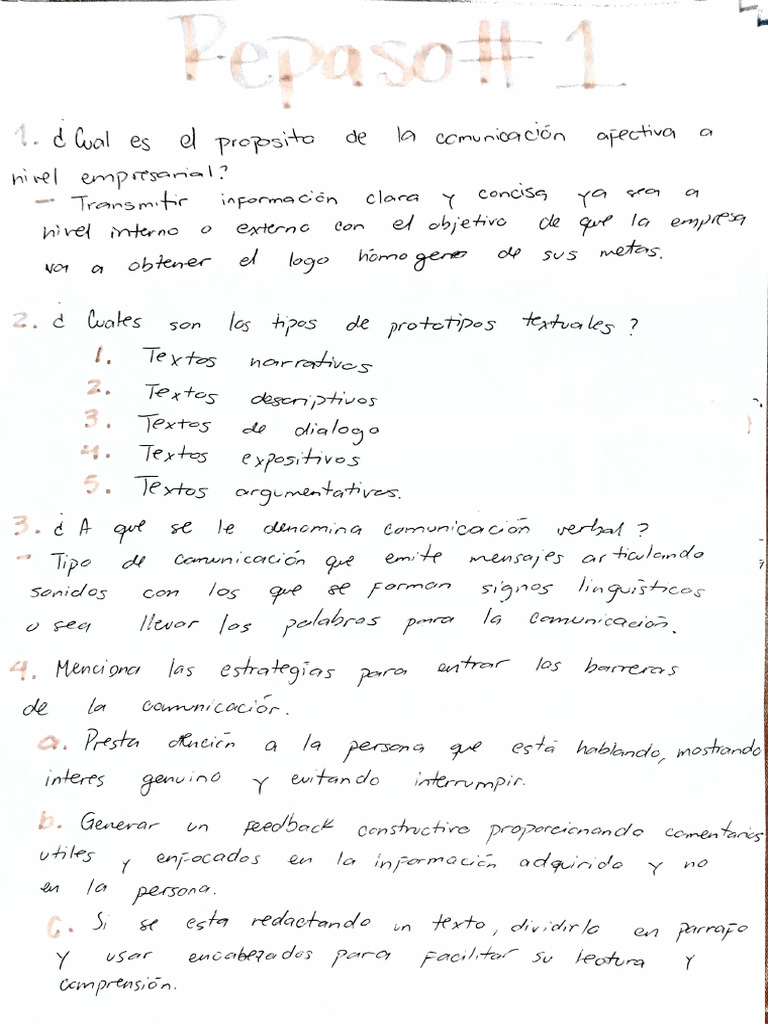 Repaso # 1
1. ¿Cual es el proposito de la comunicación afectiva a
nivel empresarial?
- Transmitir información clara y concisa ya sea a
nivel interno o externo con el objetivo de que la empresa
va a obtener el logo homogeno de sus metas.
2. ¿Cuales son los tipos de prototipos textuales?
1. Textos narrativos
2. Textos descriptivos
3. Textos de dialogo
4. Textos expositivos
5. Textos argumentativos.
3. ¿A que se le denomina comunicación verbal?
- Tipo de comunicación que emite mensajes articulando
sonidos con los que se forman signos linguísticos
o sea llevar las palabras para la comunicación.
4. Menciona las estrategias para entrar las barreras
de la comunicación.
a. Presta atención a la persona que está hablando, mostrando
interes genuino y evitando interrumpir.
b. Generar un feedback constructivo proporcionando comentarios
utiles y enfocados en la información adquirida y no
en la persona.
c. Si se esta redactando un texto, dividirlo en parrafo
y usar encabezados para facilitar su lectura y
comprensión.